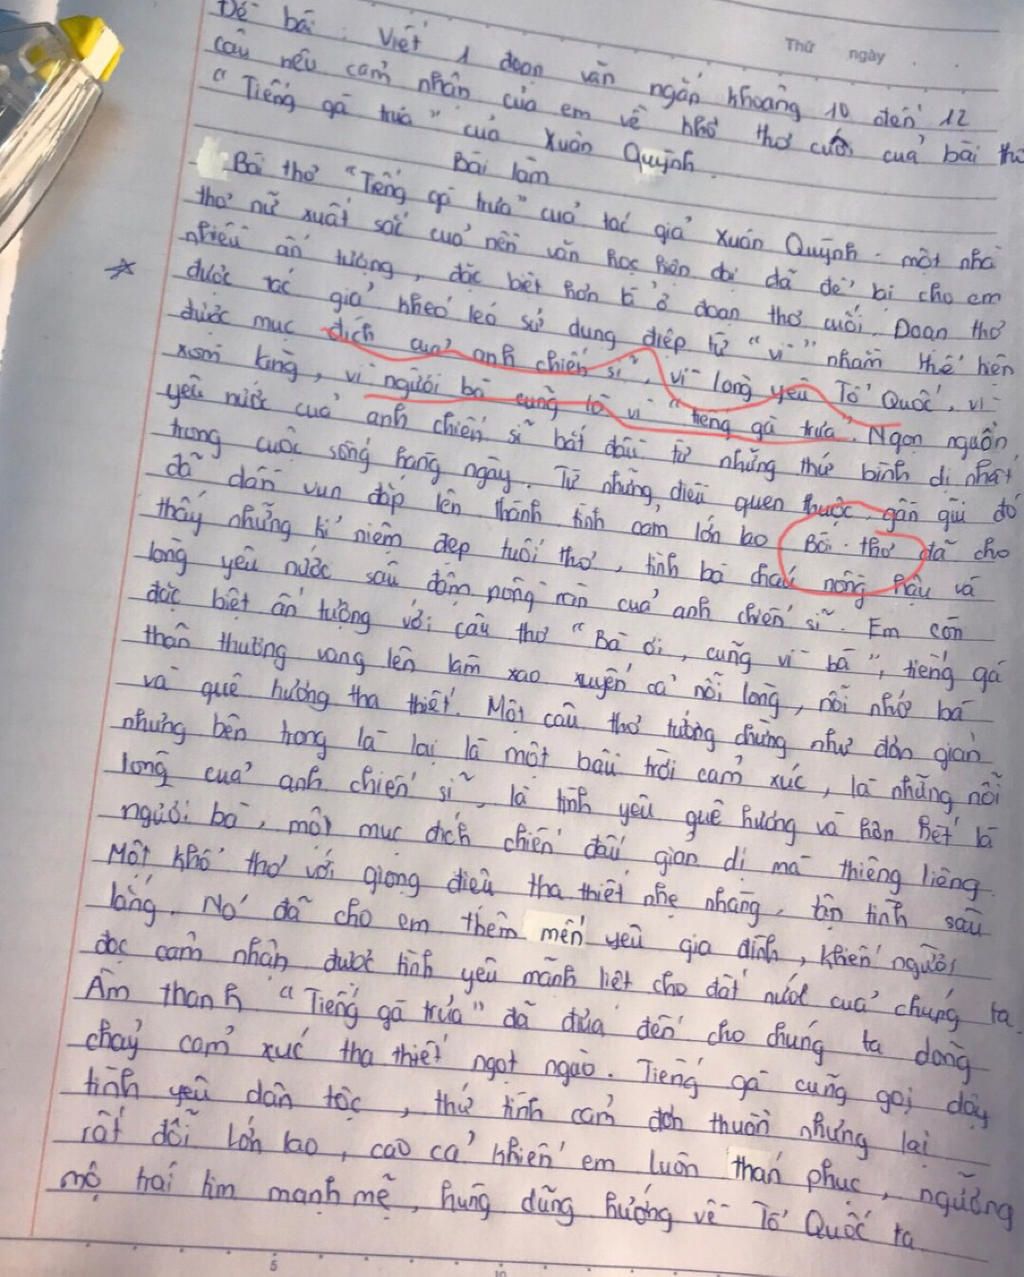 Thứ ngày
Đề bài: Viết 1 đoạn văn ngắn khoảng 10 đến 12
câu nêu cảm nhận của em về khổ thơ cuối của bài thơ
"Tiếng gà trưa" của Xuân Quỳnh.
Bài làm
Bài thơ "Tiếng gà trưa" của tác giả Xuân Quỳnh - một nhà
thơ nữ xuất sắc của nền văn học hiện đại đã để lại cho em
nhiều ấn tượng, đặc biệt hơn là ở đoạn thơ cuối. Đoạn thơ
được tác giả khéo léo sử dụng điệp từ "vì" nhằm thể hiện
được mục đích của anh chiến sĩ, vì lòng yêu Tổ Quốc, vì
xóm làng, vì người bà cùng là vì "tiếng gà trưa". Ngọn nguồn
yêu nước của anh chiến sĩ bắt đầu từ những thứ bình dị nhất
trong cuộc sống hằng ngày. Từ những điều quen thuộc, gần gũi đó
đã dần vun đắp lên thành tình cảm lớn lao. Bài thơ đã cho
thấy những kỉ niệm đẹp tuổi thơ, tình bà cháu nồng hậu và
lòng yêu nước sâu đậm nồng nàn của anh chiến sĩ. Em còn
đặc biệt ấn tượng với câu thơ "Bà ơi, cũng vì bà", tiếng gà
thân thương vang lên làm xao xuyến cả nỗi lòng, nỗi nhớ bà
và quê hương tha thiết. Một câu thơ tưởng chừng như đơn giản
nhưng bên trong là lại là một bầu trời cảm xúc, là những nỗi
lòng của anh chiến sĩ, là tình yêu quê hương và hơn hết là
người bà, một mục đích chiến đấu giản dị mà thiêng liêng.
Một khổ thơ với giọng điệu tha thiết nhẹ nhàng, tận tình sâu
lắng. Nó đã cho em thêm mến yêu gia đình, khiến người
đọc cảm nhận được tình yêu mãnh liệt cho đất nước của chúng ta.
Âm thanh "Tiếng gà trưa" đã đưa đến cho chúng ta dòng
chảy cảm xúc tha thiết ngọt ngào. Tiếng gà cũng gọi dậy
tình yêu dân tộc, thứ tình cảm đơn thuần nhưng lại
rất đỗi lớn lao, cao cả khiến em luôn thán phục, ngưỡng
mộ trái tim mạnh mẽ, hùng dũng hướng về Tổ Quốc ta.
5
10